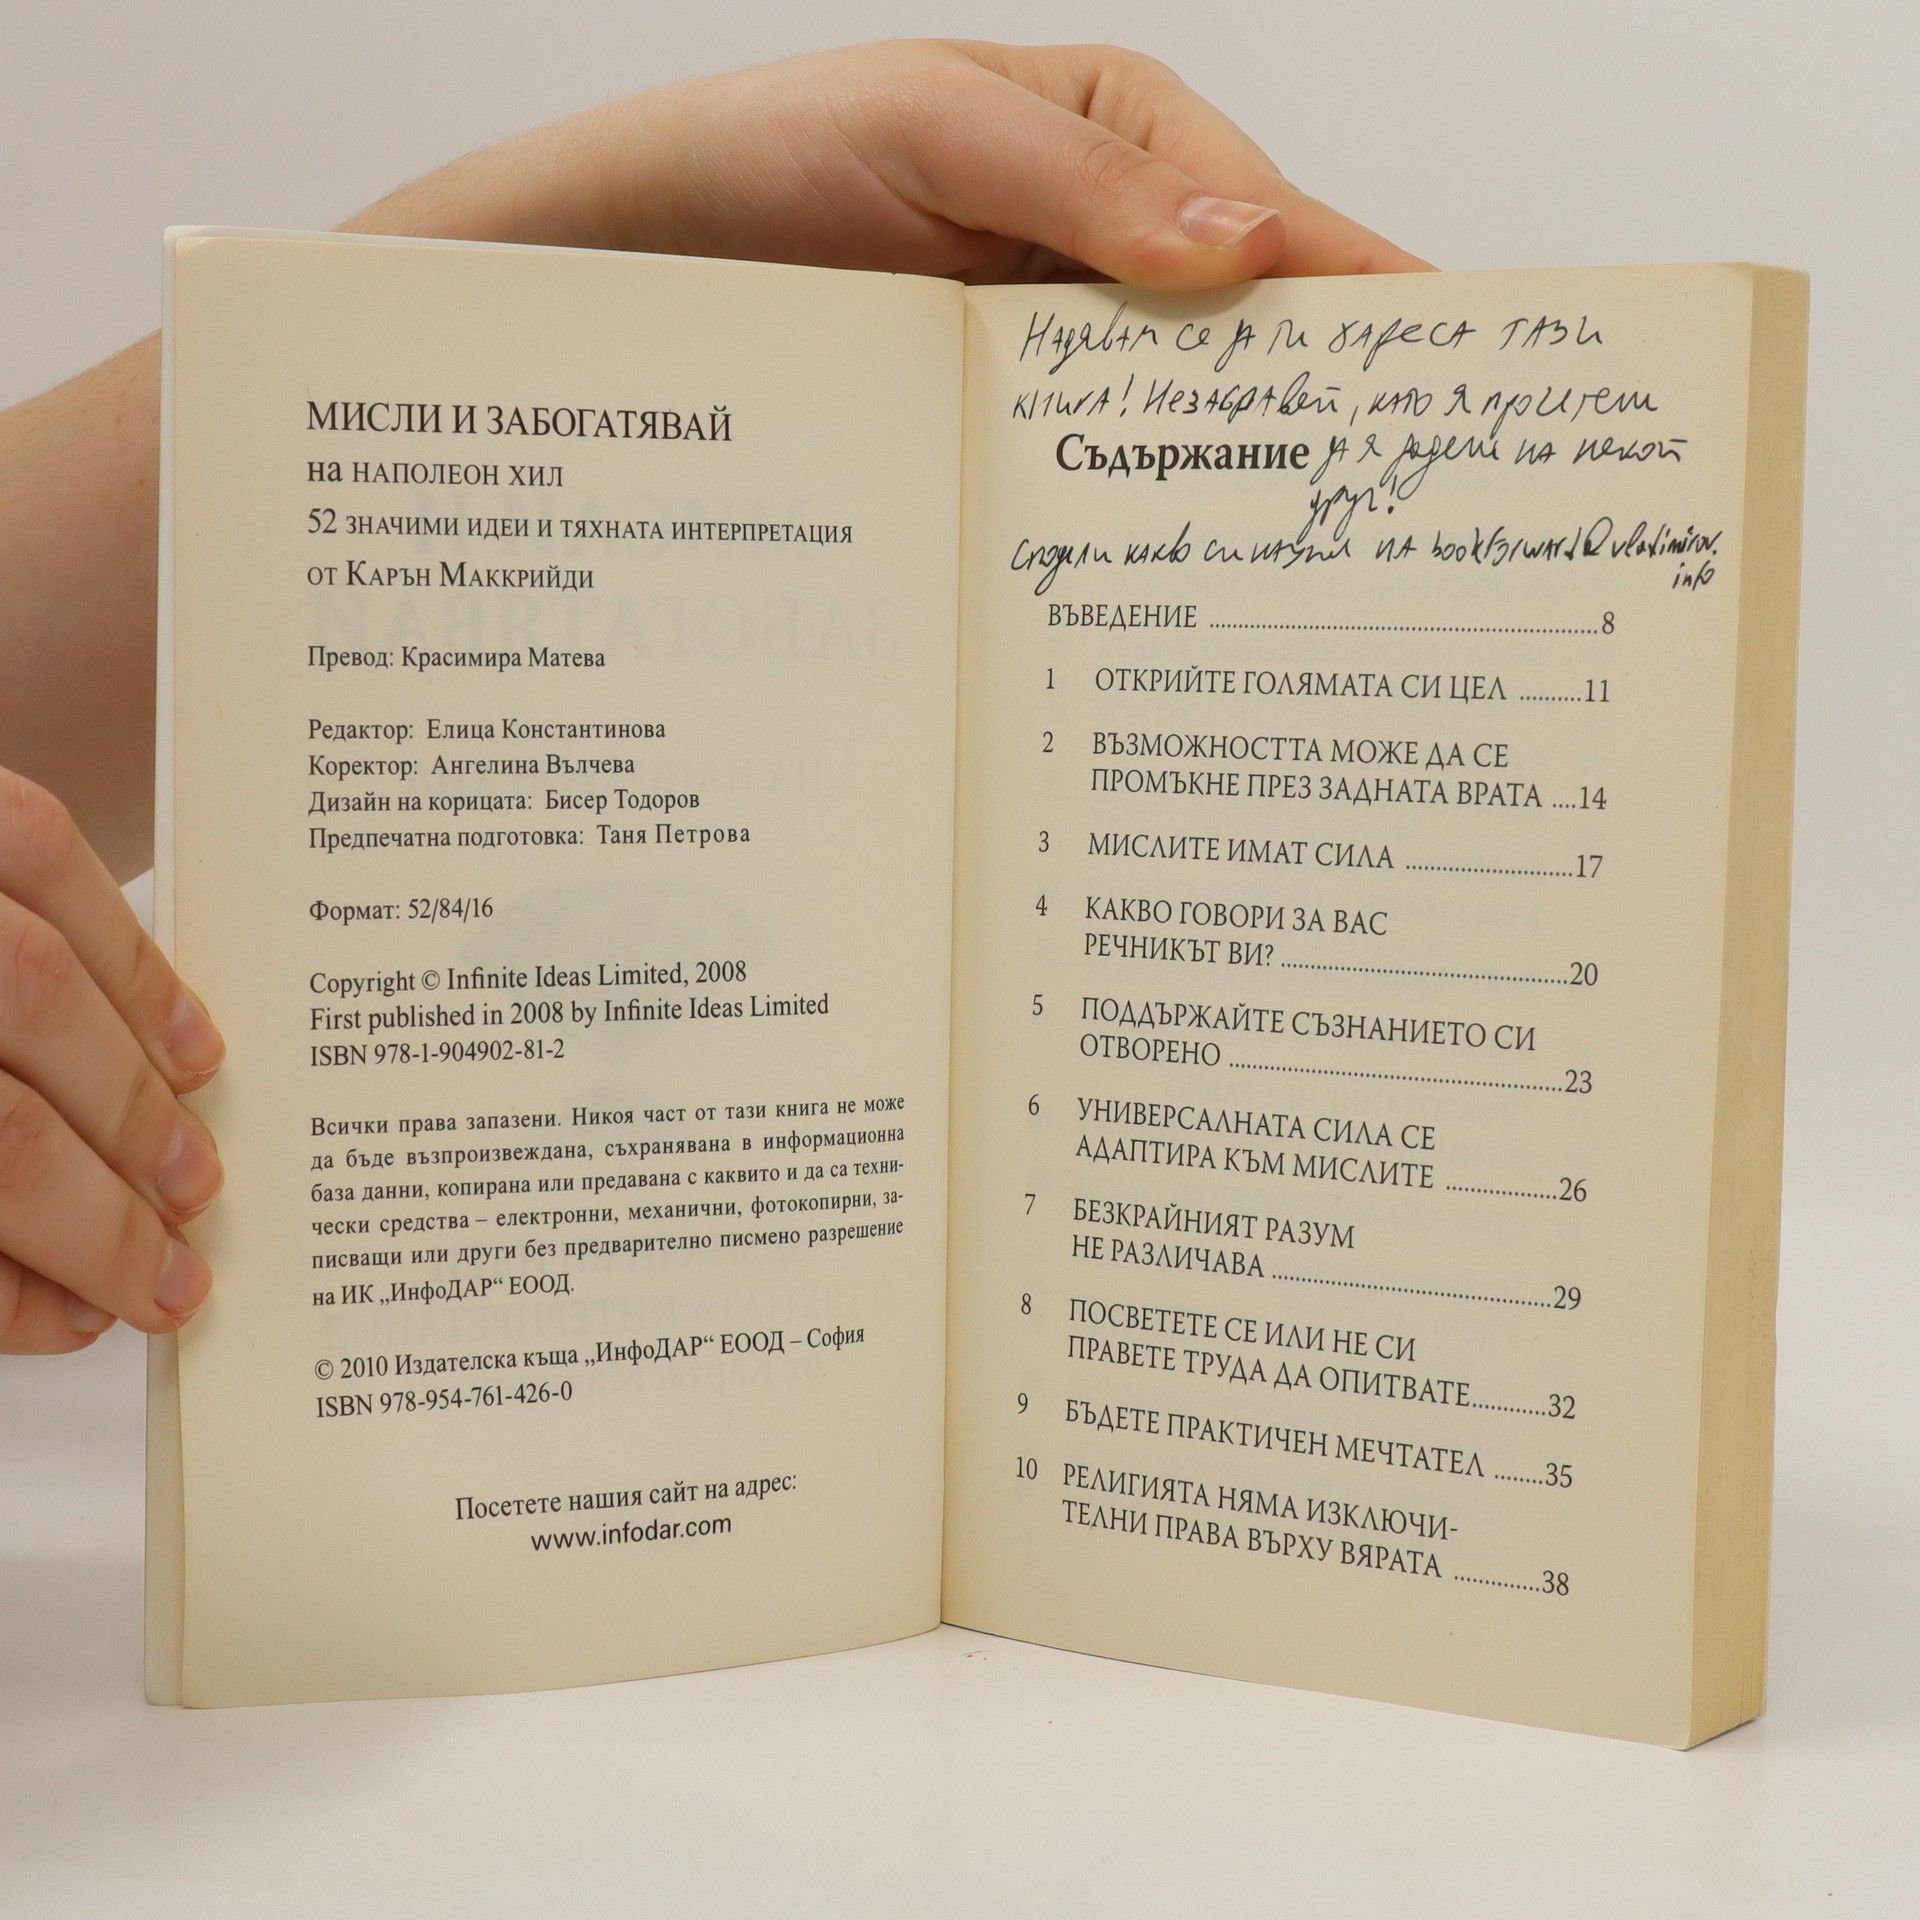 МИСЛИ И ЗАБОГАТЯВАЙ
на НАПОЛЕОН ХИЛ
52 ЗНАЧИМИ ИДЕИ И ТЯХНАТА ИНТЕРПРЕТАЦИЯ
ОТ КАРЪН МАККРИЙДИ
Превод: Красимира Матева
Редактор: Елица Константинова
Коректор: Ангелина Вълчева
Дизайн на корицата: Бисер Тодоров
Предпечатна подготовка: Таня Петрова
Формат: 52/84/16
Copyright © Infinite Ideas Limited, 2008
First published in 2008 by Infinite Ideas Limited
ISBN 978-1-904902-81-2
Всички права запазени. Никоя част от тази книга не може
да бъде възпроизвеждана, съхранявана в информационна
база данни, копирана или предавана с каквито и да са техни-
чески средства – електронни, механични, фотокопирни, за-
писващи или други без предварително писмено разрешение
на ИК „ИнфоДАР“ ЕООД.
© 2010 Издателска къща „ИнфоДАР“ ЕООД – София
ISBN 978-954-761-426-0
Посетете нашия сайт на адрес:
www.infodar.com
Надявам се да ти хареса тази
книга! Незабравяй, като я прочетеш
Съдържание да я дадеш на некой
друг!
Сподели какво си научил на bookforward@vladimirov.
info
ВЪВЕДЕНИЕ ..........8
1 ОТКРИЙТЕ ГОЛЯМАТА СИ ЦЕЛ ..........11
2 ВЪЗМОЖНОСТТА МОЖЕ ДА СЕ
ПРОМЪКНЕ ПРЕЗ ЗАДНАТА ВРАТА ....14
3 МИСЛИТЕ ИМАТ СИЛА ..........17
4 КАКВО ГОВОРИ ЗА ВАС
РЕЧНИКЪТ ВИ? ..........20
5 ПОДДЪРЖАЙТЕ СЪЗНАНИЕТО СИ
ОТВОРЕНО ..........23
6 УНИВЕРСАЛНАТА СИЛА СЕ
АДАПТИРА КЪМ МИСЛИТЕ ..........26
7 БЕЗКРАЙНИЯТ РАЗУМ
НЕ РАЗЛИЧАВА ..........29
8 ПОСВЕТЕТЕ СЕ ИЛИ НЕ СИ
ПРАВЕТЕ ТРУДА ДА ОПИТВАТЕ..........32
9 БЪДЕТЕ ПРАКТИЧЕН МЕЧТАТЕЛ ........35
10 РЕЛИГИЯТА НЯМА ИЗКЛЮЧИ-
ТЕЛНИ ПРАВА ВЪРХУ ВЯРАТА ..........38